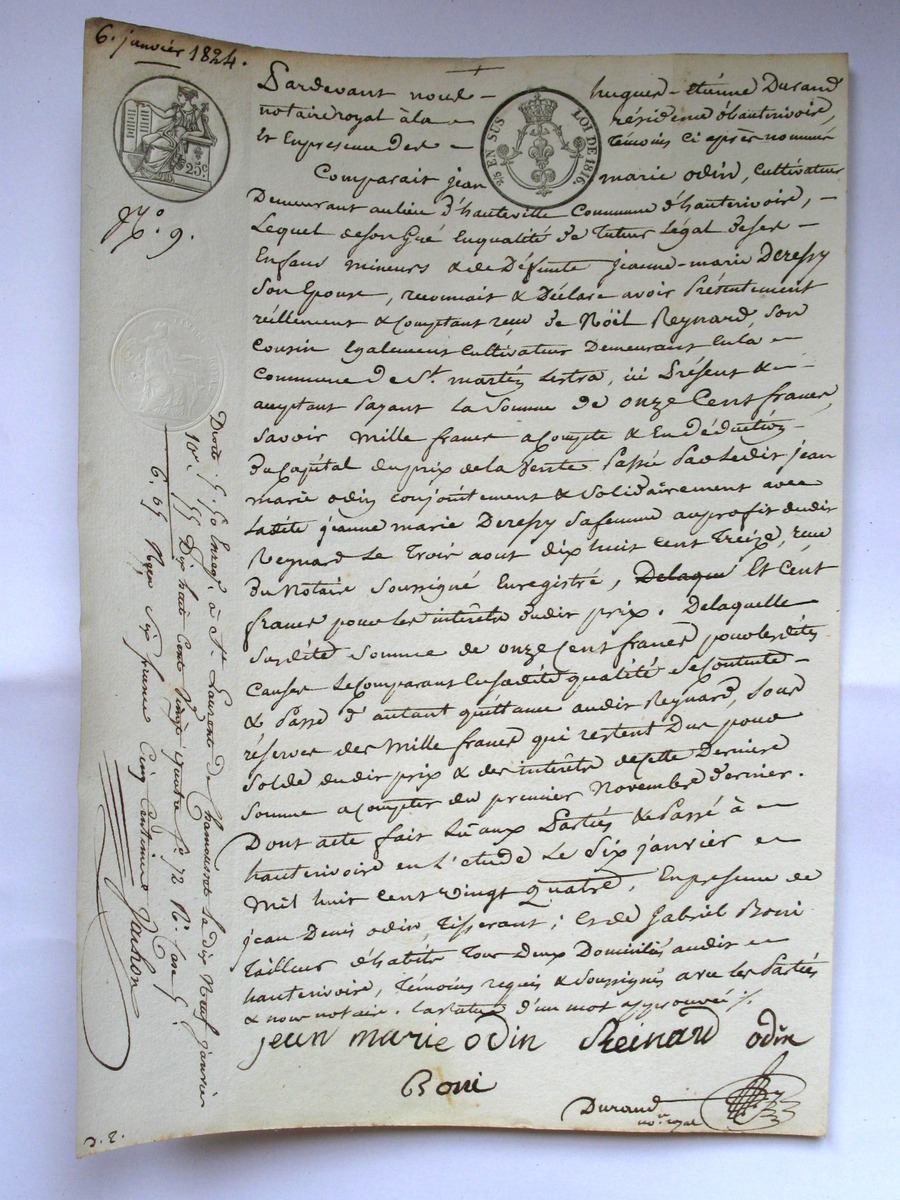 6. janvier 1824.
Pardevant nous hugues-étiénne Durand
notaire royal à la résidence d'hauterivoire,
Et En presence des témoins Ci après nommés
25c.
25 EN SUS LOI DE 1816.
Comparait jean marie odin, Cultivateur
Demeurant au lieu d'hauteville Commune d'hauterivoire,
N.º 9.
Lequel de son Gré En qualité de Tuteur Légal de ses
Enfans mineurs & de Défunte jeanne-marie Deressy
Son Epouse, reconnait & Déclare avoir Présentement
réellement & Comptant reçu de Nöel Reynard, son
Cousin également Cultivateur Demeurant En la
Commune de St. martin Lestra, ici Présent &
acceptant Payant La Somme de onze Cent francs,
Savoir mille francs a Compte & En déduction
Du Capital du prix de la Vente Passée Par Ledit jean
marie odin conjointement & Solidairement avec
Ladite jeanne marie Deressy Sa femme au profit dudit
Reynard Le Trois aout dix huit cent treize, reçu
Du Notaire Soussigné Enregistré, Delaque Et Cent
francs pour les intérêts dudit prix. De laquelle
Susdite Somme de onze Cent francs pour lesdites
Causes le Comparant En sadite qualité se Contente
& Passe d'autant quittance audit Reynard, sous
réserves des mille francs qui restent Dus pour
Solde dudit prix & des intérêts de cette Dernière
Somme a Compter du premier Novembre dernier.
Dont acte fait Lu aux Parties & Passé à
hauterivoire en L'étude Le Six janvier
Mil huit Cent vingt quatre, En presence de
jean Denis odin, Tisserant; Et de Gabriel Boni
Tailleur d'habits Tous Deux Domiciliés audit
hauterivoire, Témoins requis & Soussignés avec les Parties
& nous notaire. La rature d'un mot approuvée
jean marie odin Reinard odin
Boni
Durand
no.re royal
Enregé à St. Laurent de Chamousset le dix Neuf janvier
Dix huit Cent Vingt quatre fo. 72 Ro. Case
Reçu Six francs Cinq Centimes